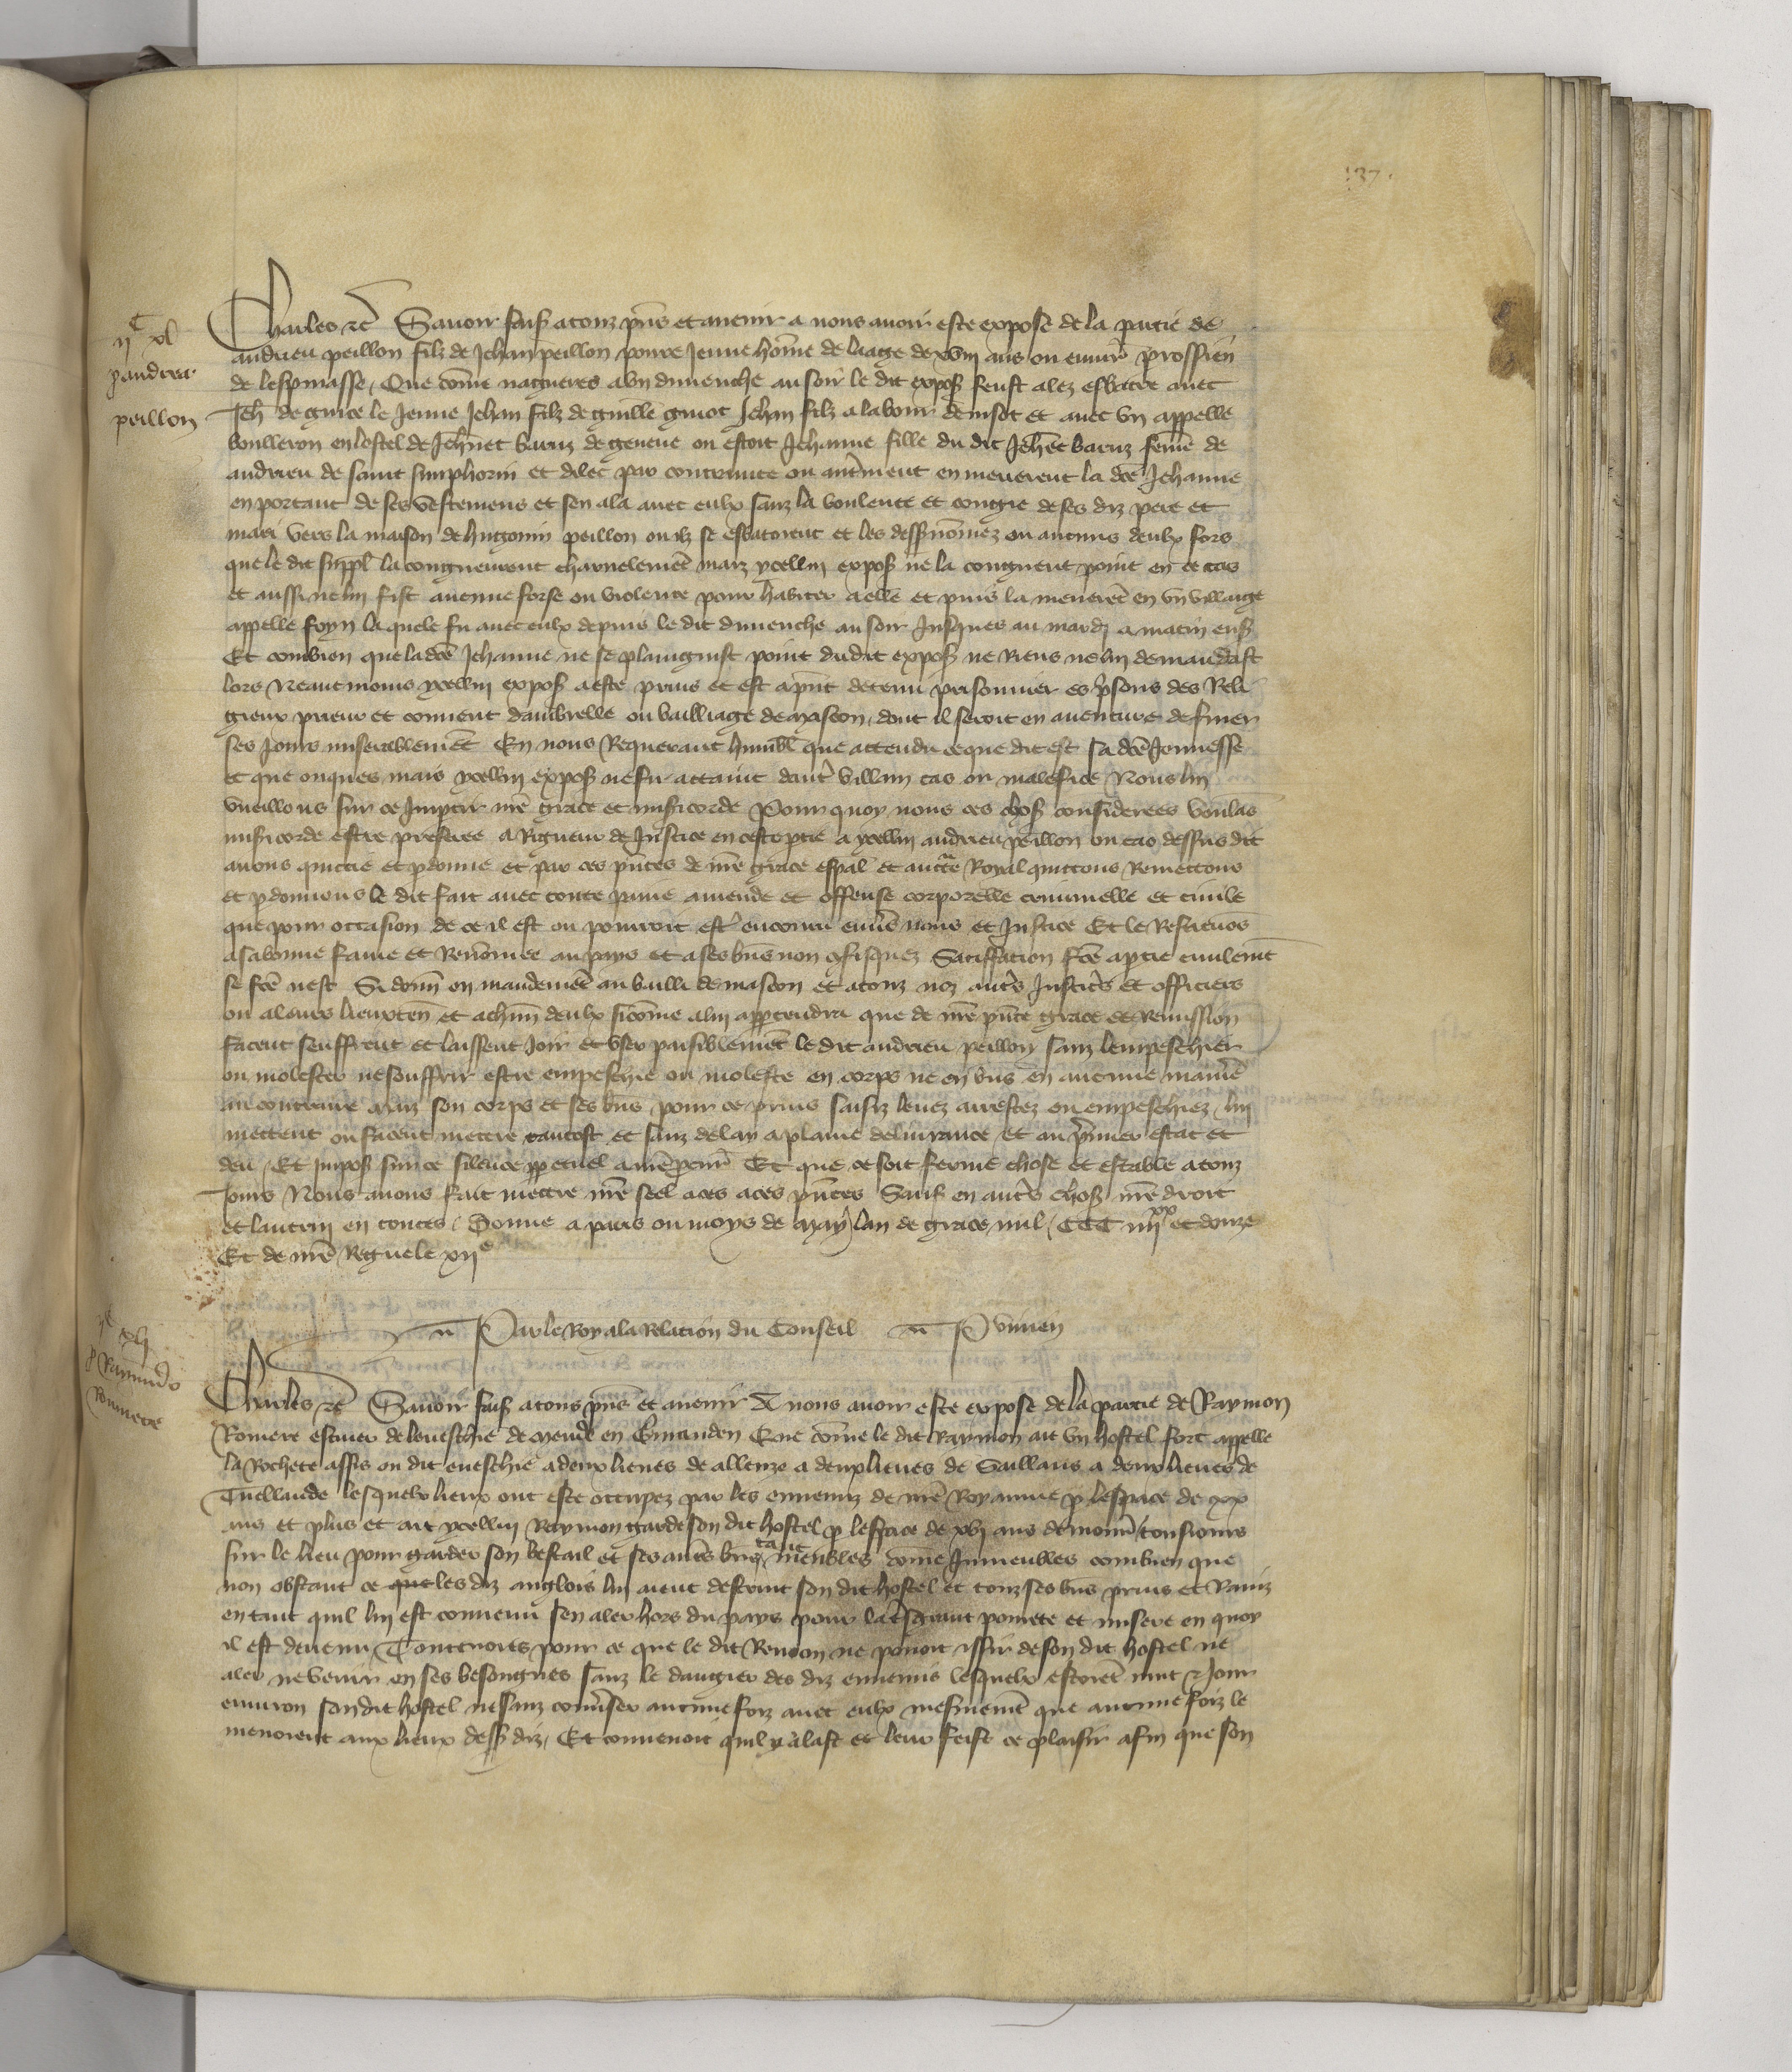 137
IIc xl
p andrea
peillon
Charles etc Savoir faisons a touz pns et avenir a nous avoir este expose de la partie de
andrieu peillon filz de Jehan peillon povre jeune home de laage de xviii ans ou environ
de lespinasse, Que come nagueres a un dimenche au soir le dit expos feust alez esbatre avec
Jeh de le jeune Jehan filz de guille guiot Jehan filz et avec un appelle
boulleron en lostel de Jehnet baruz de geneve ou estoit Jehanne fille du dit Jehnet baruz feme de
andrieu de saint simphorin et dilec par contrainte ou autrement en menerent la dce Jehanne
en portant de ses vestemens et sen ala avec eulx sanz la voulente et congie de ses diz pere et
mari vers la maison de hugonin peillon ou ilz se esbatoient et les dessnomez ou aucuns deulx fors
que le dit suppl la congneurent charnelement maiz ycellui expos ne la congneut point en ce cas
et aussi ne lui fist aucune forse ou violence pour habiter a elle et puis la menerent en un villaige
appelle foyn la quele fu avec eulx depuis le dit dimenche au soir jusques au mardi a matin ens
Et combien que la dce Jehanne ne se plaingnist point dudit expos ne riens ne lui demandast
lors Neantmoins ycellui expos a este prins et est apnt detenu prisonnier es prisons des Reli
gieux prieur et couvent dambrelle ou bailliage de mascon, dont il seroit en aventure de finer
ses jours miserablement En nous Requerant humbl que attendu ce que dit est sa dce jonnesse
et que onques mais ycellui expos ne fu attaint dautre villain cas ou malefice Nous lui
vueillons sur ce impartir nre grace et misericorde Pour quoy nous ces chos considerees voulans
misericorde estre preferee a Rigueur de Justice en ceste ptie a ycellui andrieu peillon ou cas dessus dit
avons quictie et pdonne et par ces pntes de nre grace espal et auctte Royal quictons Remectons
et pdonnons le dit fait avec toute paine amende et offense corporelle criminelle et civile
que pour occasion de ce il est ou pourroit estre encouru envers nous et Justice Et le Restituons
a sa bonne fame et Renomee au pays et a ses bns non cfisquez Satisffacion fce a ptie civilement
se fce nest Si donn en mandement au bailli de mascon et a touz noz autres Justiciers et officiers
ou a leurs lieuxten et a chun deulx si come a lui apptendra que de nre pnte grace et Remission
facent seuffrent et laissent joir et user paisiblement le dit andrieu peillon sanz lempeschier
ou molester ne souffrir estre empeschie ou moleste en corps ne en bns en aucune maniere
au contraire maiz son corps et ses bns pour ce prins saisiz levez arrestez ou empeschiez lui
mettent ou facent mettre tantost et sanz delay a plaine delivrance et au premier estat et
deu, Et impos sur ce silence ppetuel a nre pcur Et que ce soit ferme chose et estable a touz
jours Nous avons fait mettre nre seel a ces a ces pntes Sauf en autres chos nre droit
et lautrui en toutes, Donne a paris ou moys de may lan de grace mil CCC iiiixx et douze
Et de nre Regne le xiie
Par le Roy a la Relacion du Conseil
IIc xli
p Raymundo
Romiere
Charles etc Savoir faisons a tous pns et avenir A nous avoir este expose de la partie de Raymon
Romere escuier de leveschie de mende en Givauden Que come le dit Raymon ait un hostel fort appelle
la Rochete assis ou dit eveschie a deux lieues de allenze a deux lieues de Saillans a deux lieues de
Tuellande lesquelx lieux ont este occupez par les ennemiz de nre Royaume p lespace de xx
ans et plus et ait ycellui Raymon garde son dit hostel p lespace de xvi ans demourant tousjours
sur le lieu pour garder son bestail et ses autres bns tant meubles come Inmeubles combien que
non obstant ce que les diz anglois lui aient destruit son dit hostel et touz ses bns prins et Raviz
en tant quil lui est convenu sen aler hors du pays pour la tresgrant povrete et misere en quoy
il est devenu, Toutesvoies pour ce que le dit Remon ne povoit issir de son dit hostel ne
aler ne venir en ses besongnes sanz le dangier des diz ennemis lesquelx estoient nuit et jour
environ son dit hostel ne sanz converser aucunefoiz avec eulx mesmement que aucunefoiz le
menoient aux lieux dess diz, Et convenoit quil y alast et leur feist ce plaisir afin que son